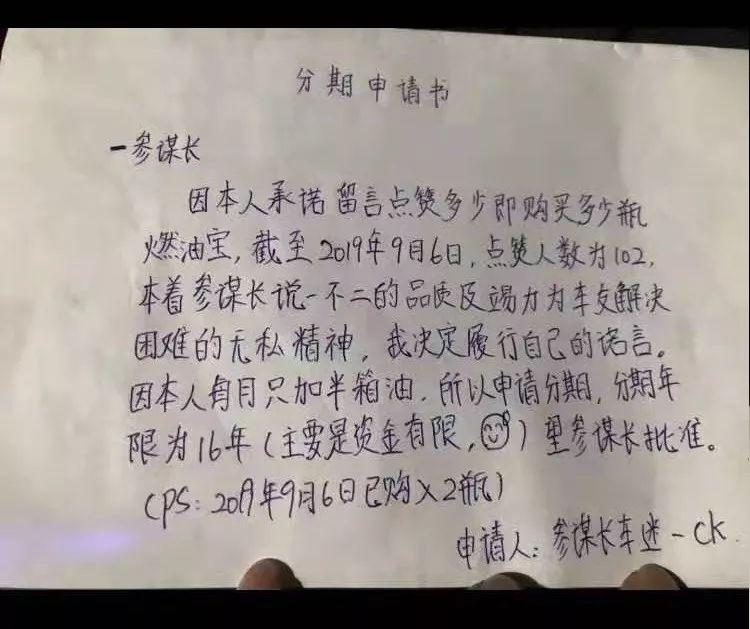 分期申请书
一参谋长
因本人承诺留言点赞多少即购买多少瓶
燃油宝，截至2019年9月6日，点赞人数为102，
本着参谋长说一不二的品质及竭力为车友解决
困难的无私精神，我决定履行自己的诺言。
因本人每月只加半箱油，所以申请分期，分期年
限为16年（主要是资金有限，）望参谋长批准。
（PS：2019年9月6日已购X2瓶）
申请人：参谋长车迷一CK